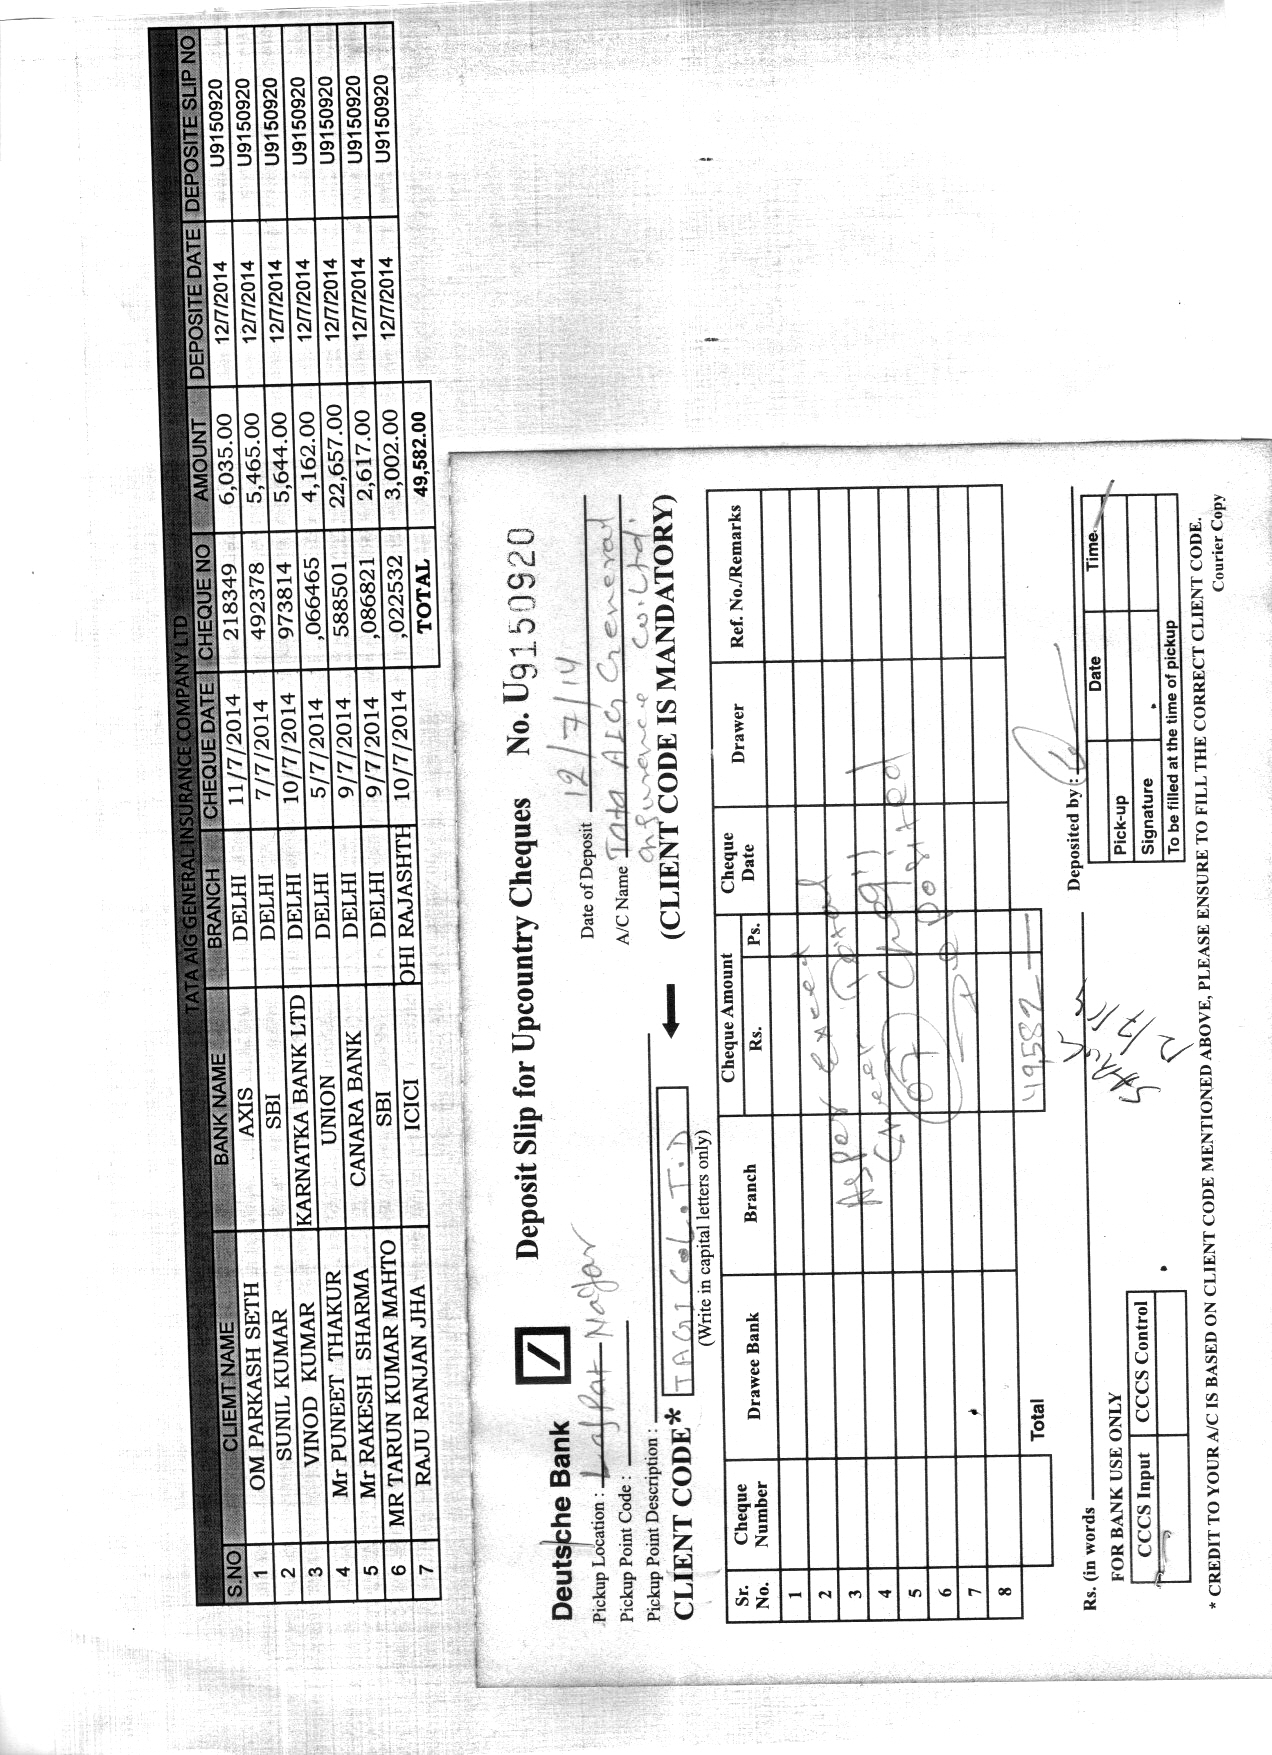 TATA AIG GENERAL INSURANCE COMPANY LTD
S.NO CLIEMT NAME BANK NAME BRANCH CHEQUE DATE CHEQUE NO AMOUNT DEPOSITE DATE DEPOSITE SLIP NO
1 OM PARKASH SETH AXIS DELHI 11/7/2014 218349 6,035.00 12/7/2014 U9150920
2 SUNIL KUMAR SBI DELHI 7/7/2014 492378 5,465.00 12/7/2014 U9150920
3 VINOD KUMAR KARNATKA BANK LTD DELHI 10/7/2014 973814 5,644.00 12/7/2014 U9150920
4 Mr PUNEET THAKUR UNION DELHI 5/7/2014 ,066465 4,162.00 12/7/2014 U9150920
5 Mr RAKESH SHARMA CANARA BANK DELHI 9/7/2014 588501 22,657.00 12/7/2014 U9150920
6 MR TARUN KUMAR MAHTO SBI DELHI 9/7/2014 ,086821 2,617.00 12/7/2014 U9150920
7 RAJU RANJAN JHA ICICI OHI RAJASHTH 10/7/2014 ,022532 3,002.00 12/7/2014 U9150920
TOTAL 49,582.00
Deutsche Bank Deposit Slip for Upcountry Cheques No. U9150920
Pickup Location : Lajpat Nagar Date of Deposit 12/7/14
Pickup Point Code : A/C Name Tata AIG General
Pickup Point Description : Insurance Co. Ltd.
CLIENT CODE* (CLIENT CODE IS MANDATORY)
(Write in capital letters only)
Sr. No. Cheque Number Drawee Bank Branch Cheque Amount Rs. Ps. Cheque Date Drawer Ref. No./Remarks
1
2
3
4
5
6
7
8
As per excel
07
Total 49,582
Rs. (in words Deposited by :
FOR BANK USE ONLY
CCCS Input CCCS Control
Pick-up Date Time
Signature
To be filled at the time of pickup
* CREDIT TO YOUR A/C IS BASED ON CLIENT CODE MENTIONED ABOVE, PLEASE ENSURE TO FILL THE CORRECT CLIENT CODE.
Courier Copy